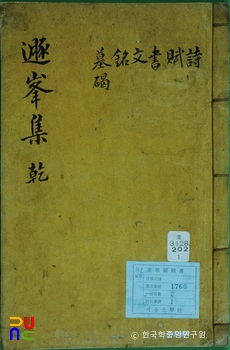 詩賦書文銘墓碣
遯峯集 乾
3428
202
1
1766
© 한국학중앙연구원